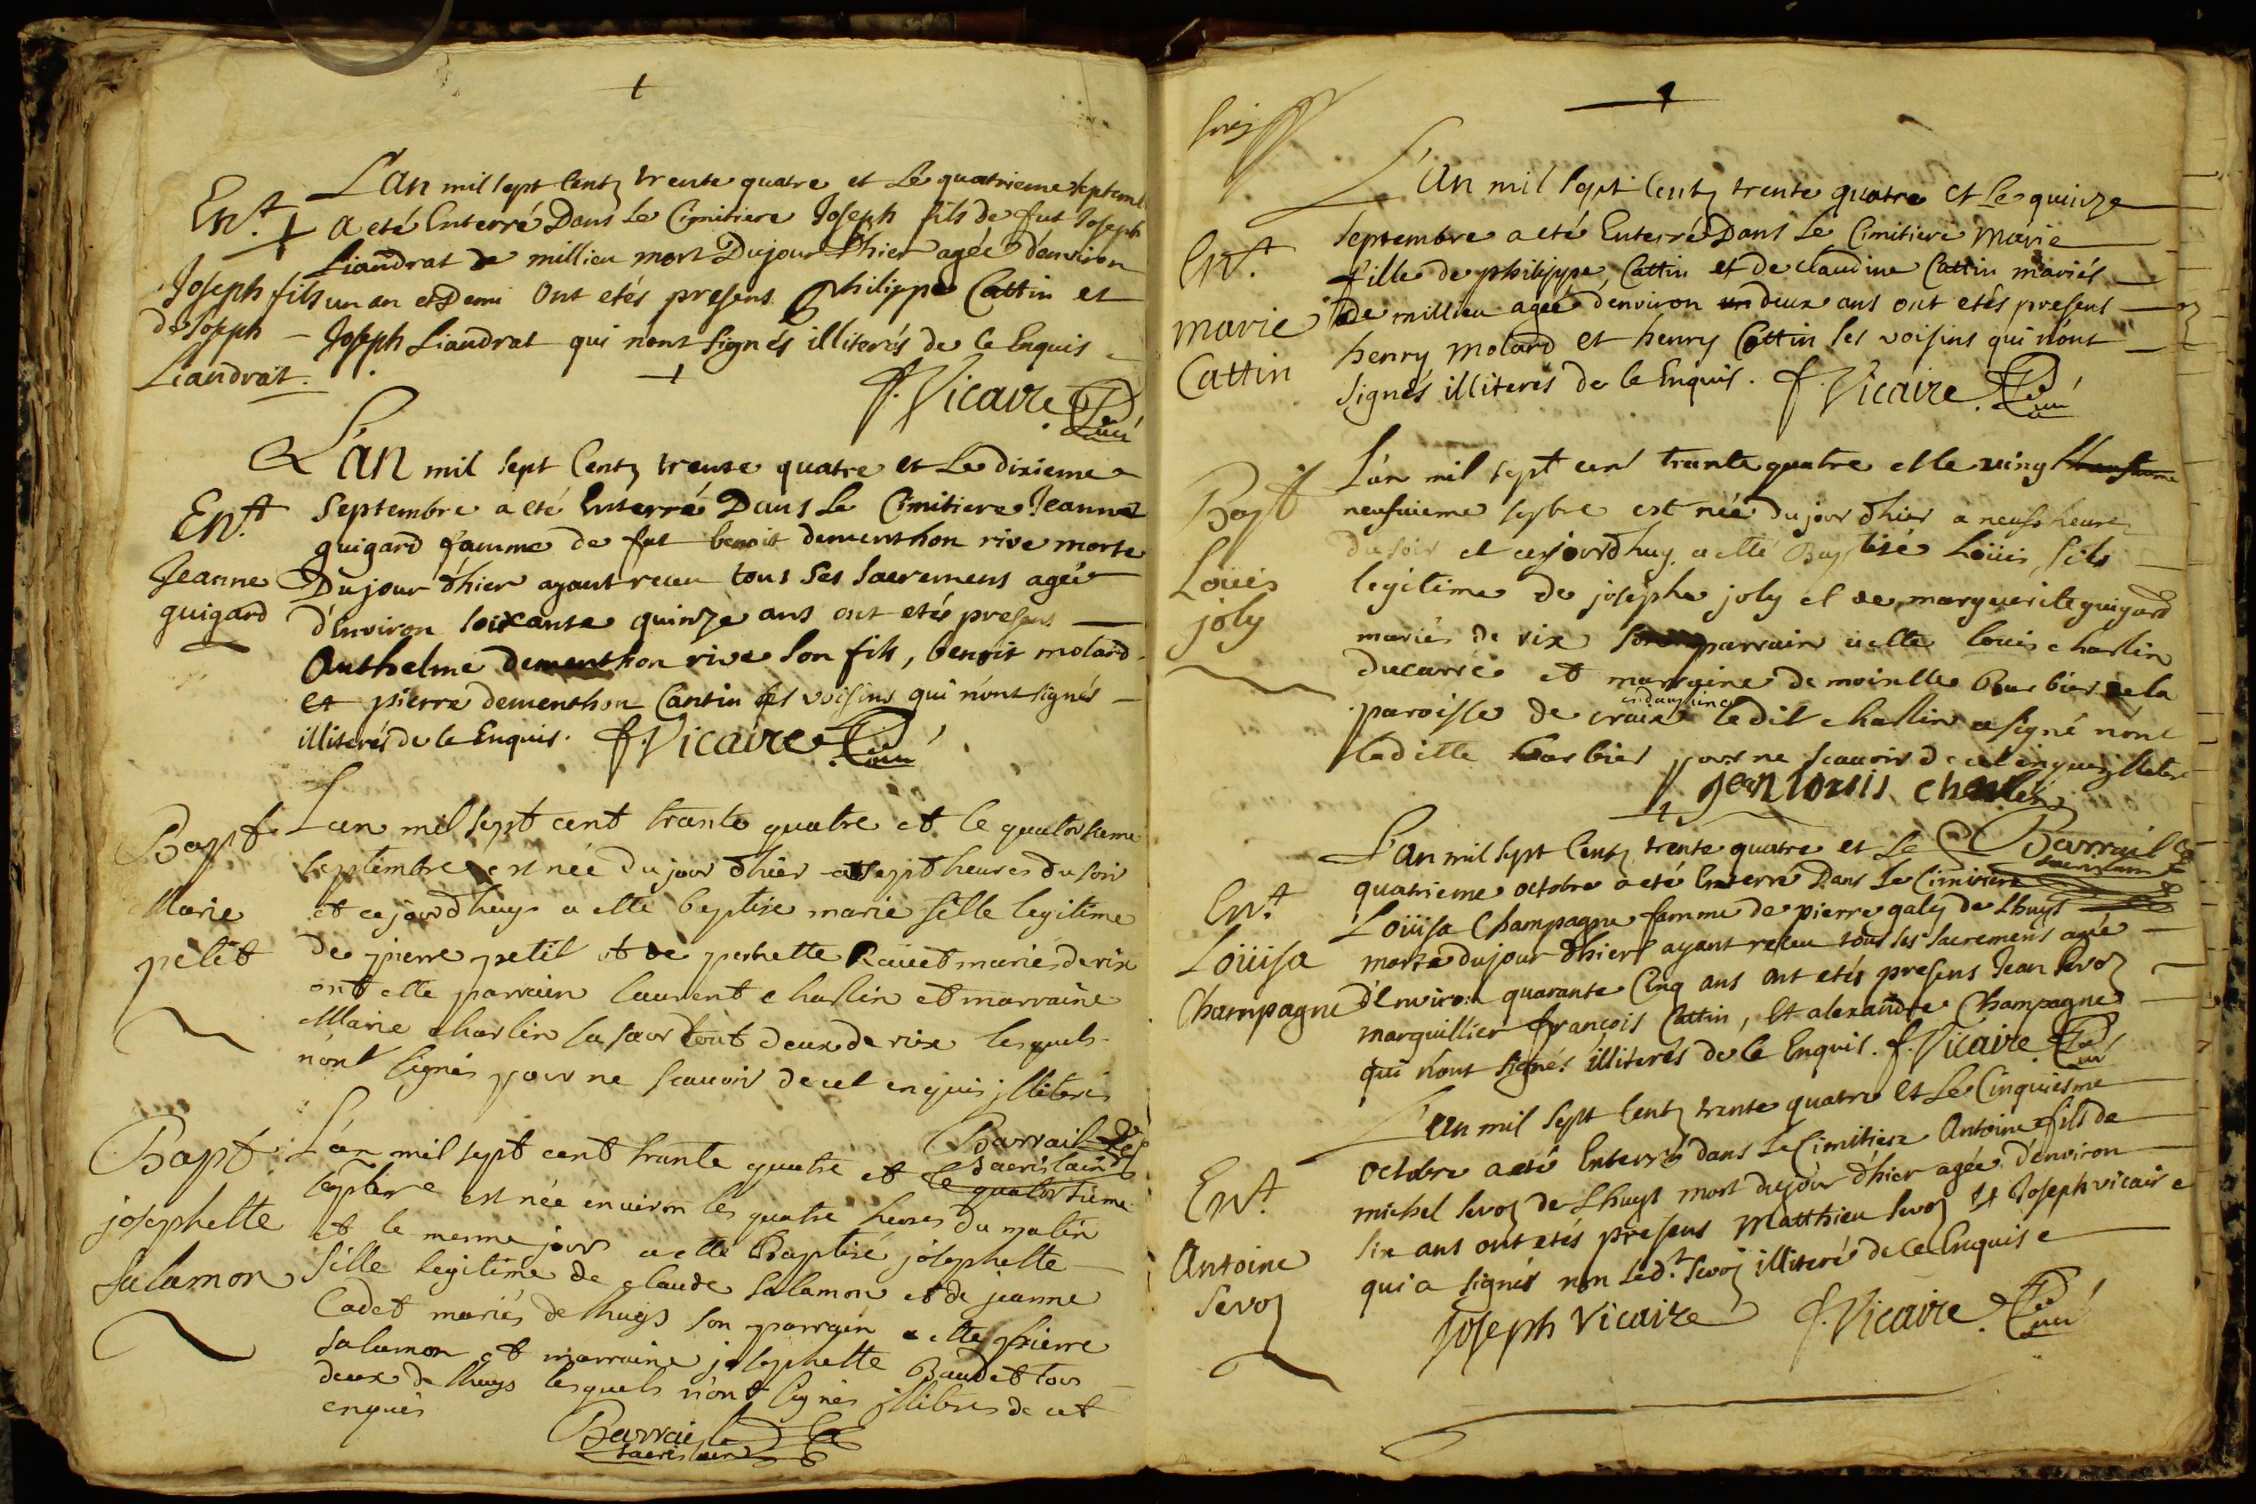 Ent.
Joseph fils
de Joseph
Liandrat.
L'an mil sept centz trente quatre et Le quatrieme septemb
a eté Enterré Dans Le Cimitiere Joseph fils de fut Joseph
Liandrat de millieu mort Dujour D'hier agée d'environ
un an et Demi Ont etés presens Philippe Cattin et
Joseph Liandrat qui n'ont signés illiterés de ce Enquis
f. Vicaire Curé
Ent.
Jeanne
guigard
L'an mil sept Centz trente quatre et Le dixieme
Septembre a eté Enterré Dans Le Cimitiere Jeanne
guigard famme de fut benoit dementhon rive morte
Dujour d'hier ayant receu tous ses sacremens agée
d'Environ soixante quinze ans ont etés presens
Anthelme dementhon rive son fils, benoit molard
et pierre dementhon Cantin ses voisins qui n'ont signés
illiterés de ce Enquis. f. Vicaire Curé
Bapt
Marie
petit
L'an mil sept cent trante quatre et le quatorsieme
septembre est née du jour d'hier a sept heures du soir
et cejourdhuy a etté baptisé marie fille legitime
de pierre petit et de pernette Ravet mariés de rix
ont etté parrain laurent charlin et marraine
Marie charlin sa sœur tout deux de rix lesquels
n'ont signés pour ne scauoir de cet enquis jlliterés
Barrail
Sacristain
Bapt
josephette
salamon
L'an mil sept cent trante quatre et le quatorsieme
septbre est née enuiron les quatre heures du matin
et le meme jour a etté Baptisé josephette
fille legitime de claude salamon et de jeanne
Cadet mariés de lhuys son parrain a etté pierre
salamon et marraine josephette Baudet tous
deux de lhuys lesquels n'ont signés jlliterés de cet
enquis
Barrail
sacristain
Ent.
marie
Cattin
L'an mil sept Centz trente quatre et Le quinze
septembre a eté Enterré Dans Le Cimitiere marie
fille de philippe Cattin et de claudine Cattin mariés
de millieu agée denviron un deux ans ont etés presens
henry molard et henry Cattin ses voisins qui n'ont
signés illiterés de ce Enquis. f. Vicaire Curé
Bapt
Loüis
joly
L'an mil sept cent trante quatre et le ving
neufuieme septbre est née du jour d'hier a neufs heures
du soir et cejourdhuy a etté Baptisé Loüis fils
legitime de josephe joly et de marguerite guigard
mariés de rix son parrain a etté louis charlin
ducarré et marraine demoiselle Barbier de la
paroisse de craix en dauphiné ledit charlin a signé non
laditte barbier pour ne scauoir de cet enquis jlliteré
jean louis charlin
Barrail
sacristain
Ent.
Loüisa
Champagne
L'an mil sept Centz trente quatre et Le
quatrieme octobre a eté Enterré Dans Le Cimitiere
Loüisa Champagne famme de pierre galy de Lhuys
morte dujour d'hier ayant receu tous ses sacremens agée
d'Environ quarante Cinq ans ont etés presens Jean Sevoz
marguillier françois Cattin, Et alexandre Champagne
qui n'ont signés illiterés de ce Enquis. f. Vicaire Curé
Ent.
Antoine
Sevoz
L'an mil sept Centz trente quatre et Le Cinquiesme
octobre a eté Enterré dans Le Cimitiere Antoine fils de
michel Sevoz de Lhuys mort dujour d'hier agée d'environ
six ans ont etés presens Matthieu Sevoz Et Joseph vicaire
qui a signés non Led.t Sevoz illiteré de ce Enquis
Joseph Vicaire f. Vicaire Curé